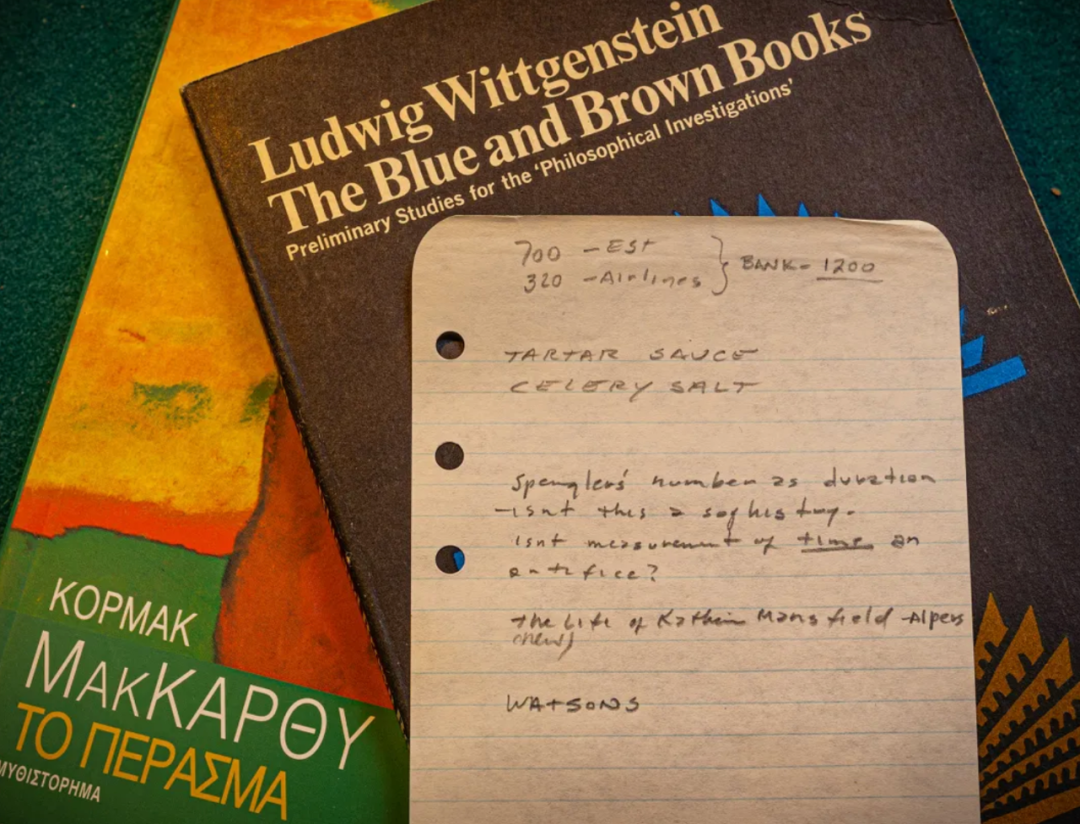 Ludwig Wittgenstein
The Blue and Brown Books
Preliminary Studies for the 'Philosophical Investigations'
700 - Est
320 - Airlines } BANK - 1200
TARTAR SAUCE
CELERY SALT
Spenglers' number as duration
- isnt this a sophistry.
isnt measurement of time an
artifice?
The Life of Mansfield - Alpers
(new)
WATSONS
ΚΟΡΜΑΚ
ΜακΚΑΡΘΥ
ΤΟ ΠΕΡΑΣΜΑ
ΜΥΘΙΣΤΟΡΗΜΑ